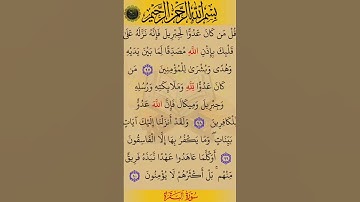 بِسْمِ اللَّهِ الرَّحْمَٰنِ الرَّحِيمِ
قُلْ مَن كَانَ عَدُوًّا لِّجِبْرِيلَ فَإِنَّهُ نَزَّلَهُ عَلَىٰ
قَلْبِكَ بِإِذْنِ اللَّهِ مُصَدِّقًا لِّمَا بَيْنَ يَدَيْهِ
وَهُدًى وَبُشْرَىٰ لِلْمُؤْمِنِينَ ٩٧ مَن
كَانَ عَدُوًّا لِّلَّهِ وَمَلَائِكَتِهِ وَرُسُلِهِ
وَجِبْرِيلَ وَمِيكَالَ فَإِنَّ اللَّهَ عَدُوٌّ
لِّلْكَافِرِينَ ٩٨ وَلَقَدْ أَنزَلْنَا إِلَيْكَ آيَاتٍ
بَيِّنَاتٍ وَمَا يَكْفُرُ بِهَا إِلَّا الْفَاسِقُونَ
٩٩ أَوَكُلَّمَا عَاهَدُوا عَهْدًا نَّبَذَهُ فَرِيقٌ
مِّنْهُم بَلْ أَكْثَرُهُمْ لَا يُؤْمِنُونَ ١٠٠
سُورَةُ الْبَقَرَةِ